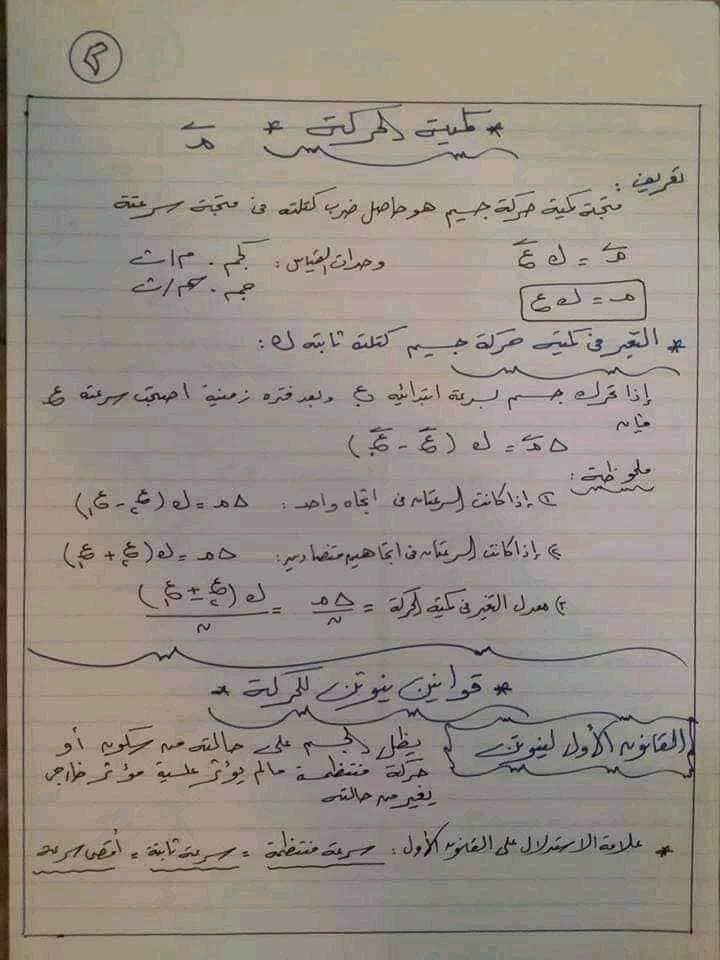 ٢
* كمية الحركة * مَ
تعريف:
متجة كمية حركة جسيم هو حاصل ضرب كتلته فى متجة سرعتة
مَ = ك عَ
وحدات القياس: كجم . م/ث
م = ك ع
جم . سم/ث
* التغير فى كمية حركة جسيم كتلته ثابته ك:
إذا تحرك جسم بسرعة ابتدائيه ع وبعد فتره زمنية اصبحت سرعته ع
فإن
Δ مَ = ك (عَ - عَ)
ملحوظة:
١) إذا كانت السرعتان فى اتجاه واحد: Δ م = ك (ع٢ - ع١)
٢) إذا كانت السرعتان فى اتجاهين متضادين: Δ م = ك (ع٢ + ع١)
٣) معدل التغير فى كمية الحركة = Δ م / ن = ك (ع٢ ± ع١) / ن
* قوانين نيوتن للحركة *
القانون الأول لنيوتن
يظل الجسم على حالته من سكون أو
حركة منتظمة مالم يؤثر علية مؤثر خارجى
يغير من حالته
* علامة الاستدلال على القانون الأول: سرعة منتظمة = سرعة ثابتة = أقصى سرعة